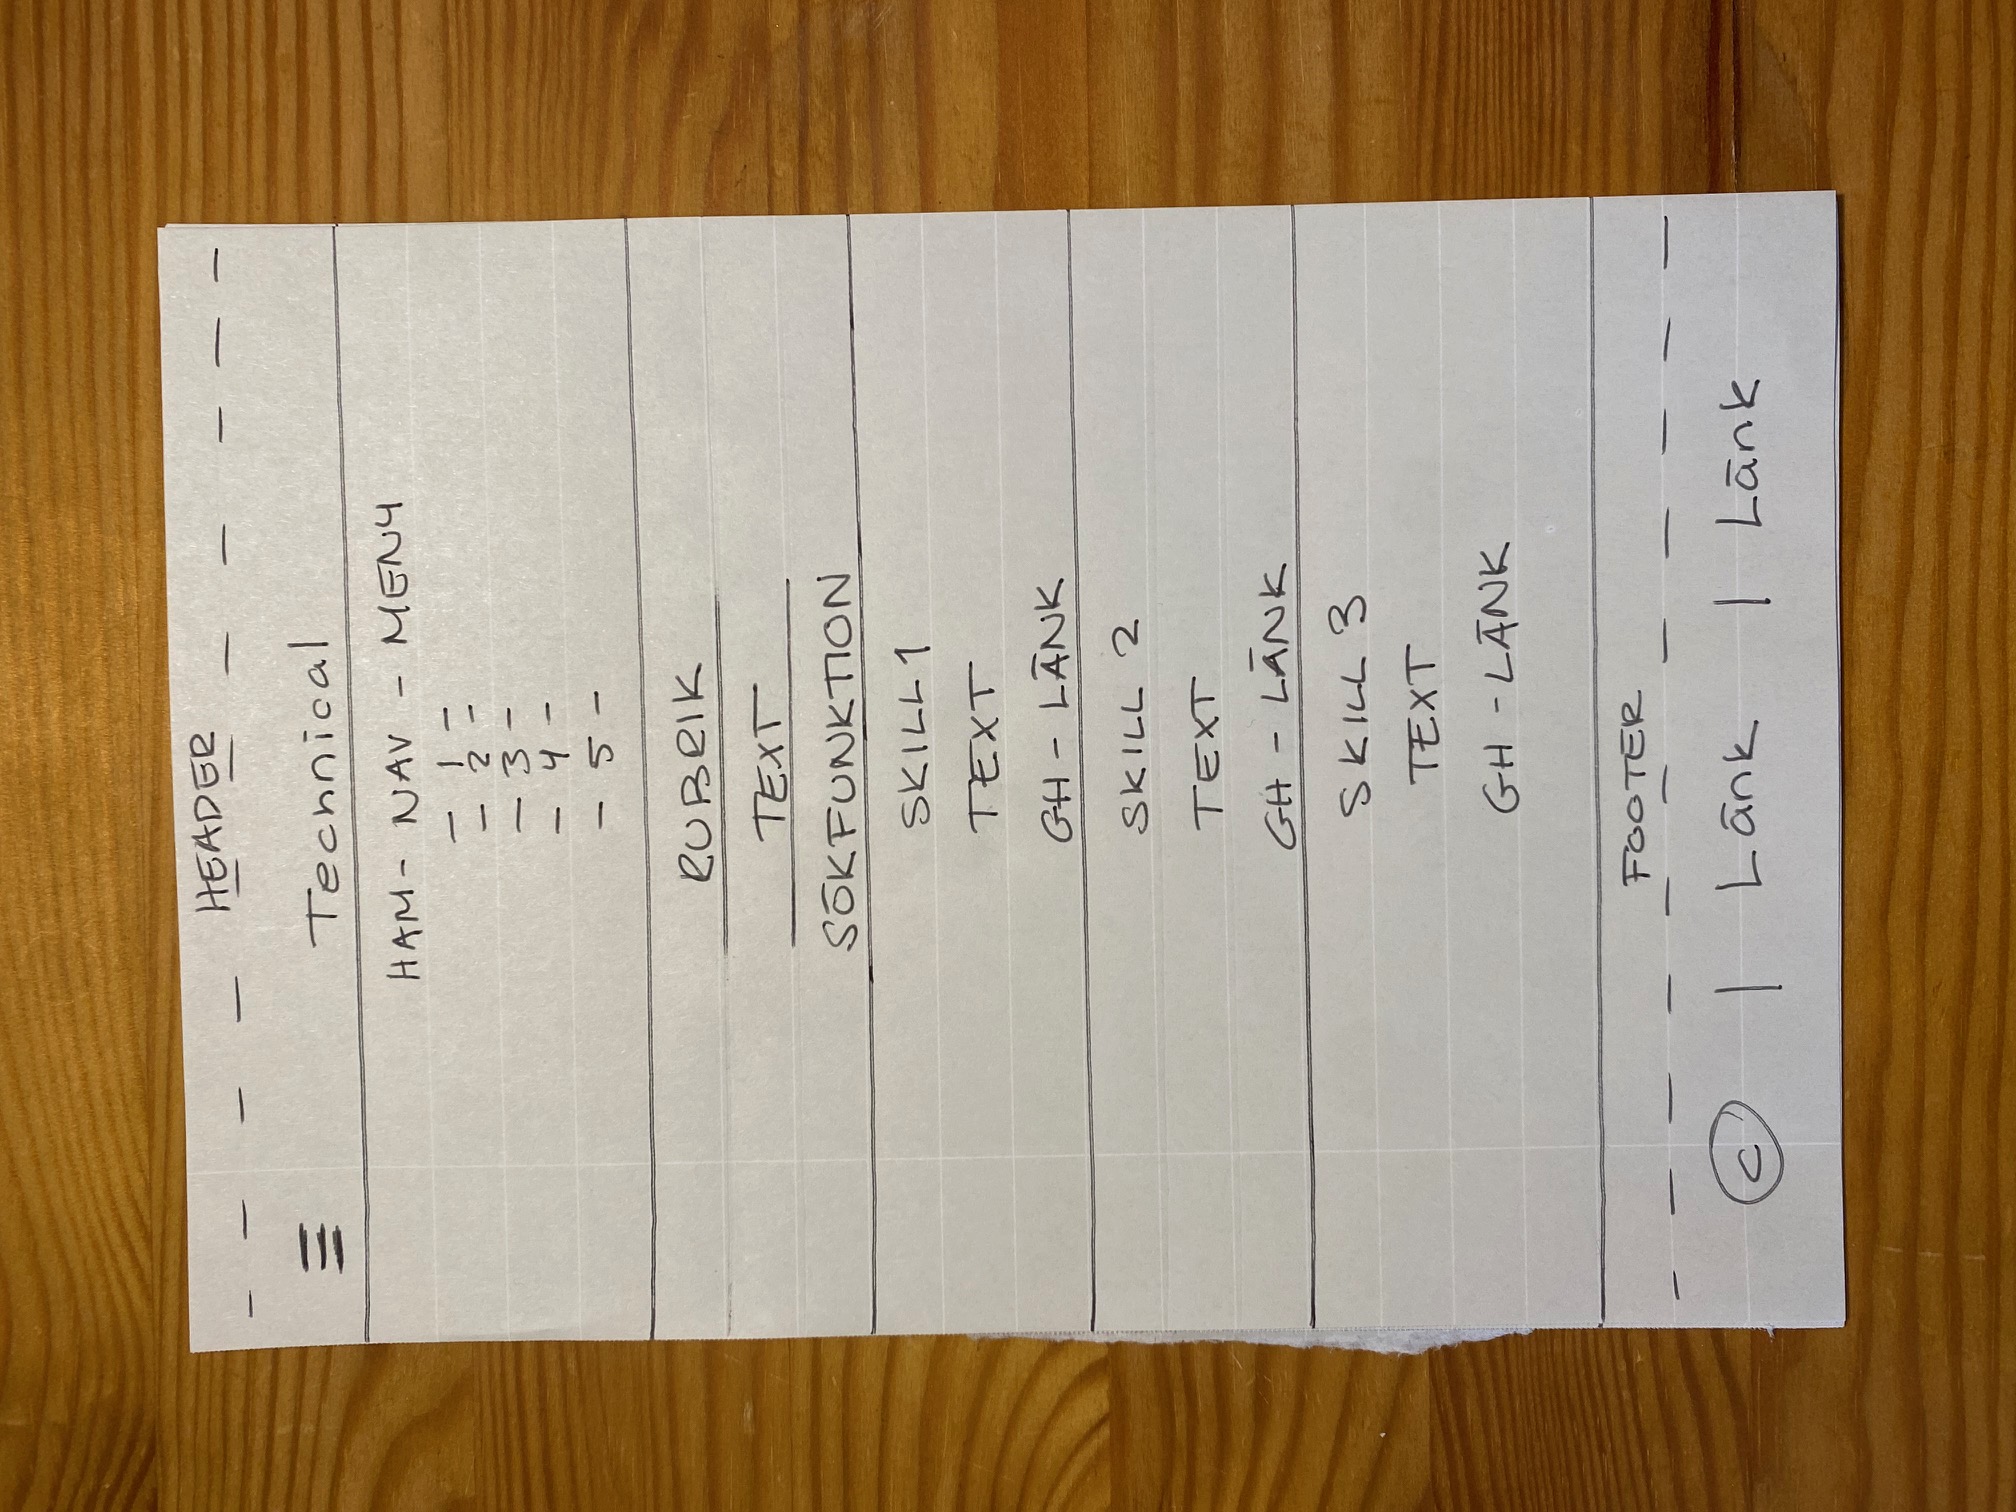 HEADER
Technical
HAM - NAV - MENY
- 1 -
- 2 -
- 3 -
- 4 -
- 5 -
RUBRIK
TEXT
SÖKFUNKTION
SKILL 1
TEXT
GH - LÄNK
SKILL 2
TEXT
GH - LÄNK
SKILL 3
TEXT
GH - LÄNK
FOOTER
© | Länk | Länk